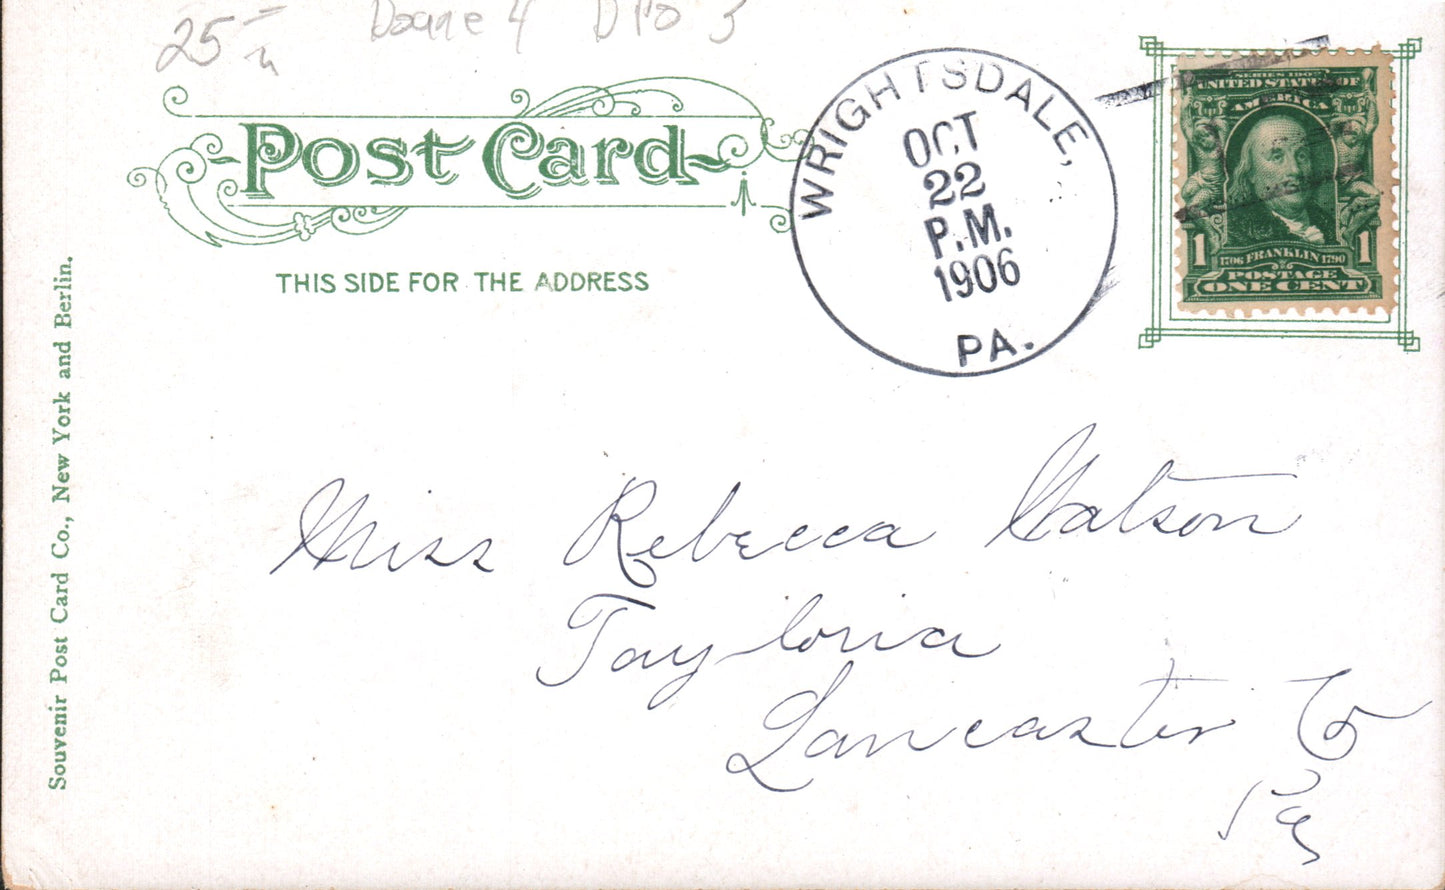 25
Doane 4 DPO 3
Post Card
THIS SIDE FOR THE ADDRESS
WRIGHTSDALE,
OCT
22
P.M.
1906
PA.
SERIES 1902
UNITED STATES OF
AMERICA
1 1
1706 FRANKLIN 1790
POSTAGE
ONE CENT
Souvenir Post Card Co., New York and Berlin.
Miss Rebecca Watson
Tayloria
Lancaster Co
Pa